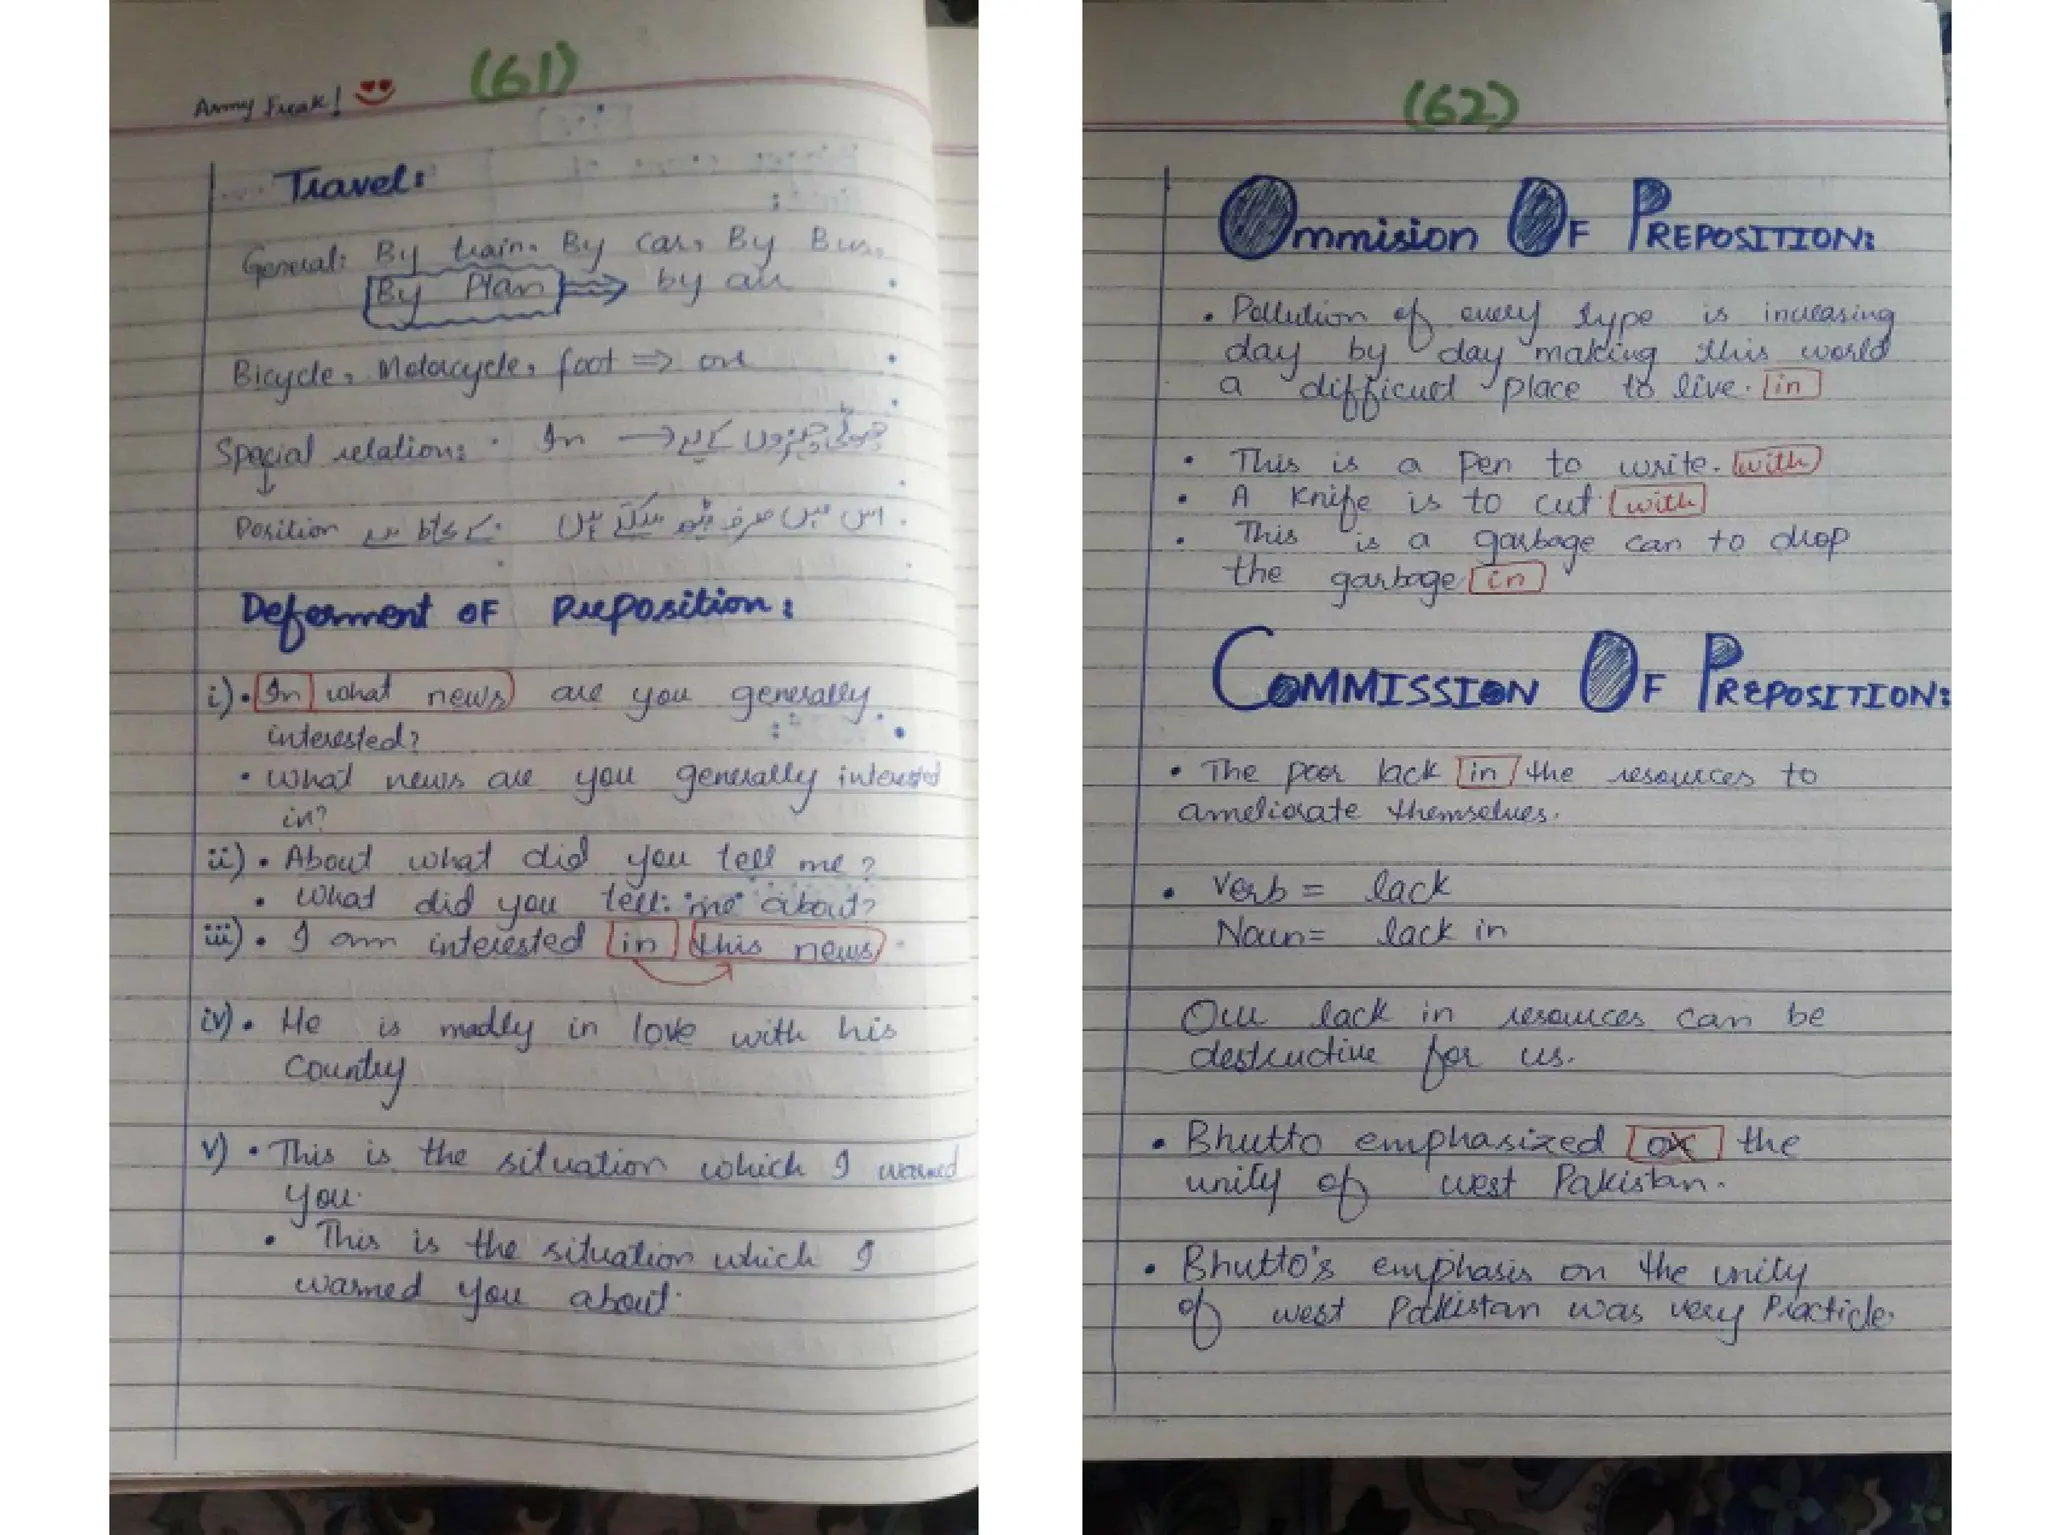 Army Freak!
(61)
Travel:
General: By train, By car, By Bus,
By Plan by air
Bicycle, Motorcycle, foot ⇒ on
Spacial relation: · In → چھوٹی چیزوں کے لیے
↓
Position کے لحاظ سے اس میں صرف ہو سکتے ہیں
Deferment of preposition:
i) • In what news are you generally
interested?
• what news are you generally interested
in?
ii) • About what did you tell me?
• what did you tell me about?
iii) • I am interested in this news
iv) • He is madly in love with his
country
v) • This is the situation which I warned
you.
• This is the situation which I
warned you about.
(62)
Ommision Of Preposition:
• Pollution of every type is increasing
day by day making this world
a difficult place to live. in
• This is a pen to write. with
• A knife is to cut. with
• This is a garbage can to drop
the garbage in
Commission Of Preposition:
• The poor lack in the resources to
ameliorate themselves.
• Verb = lack
Noun = lack in
Our lack in resources can be
destructive for us.
• Bhutto emphasized on the
unity of west Pakistan.
• Bhutto's emphasis on the unity
of west Pakistan was very Practicle.